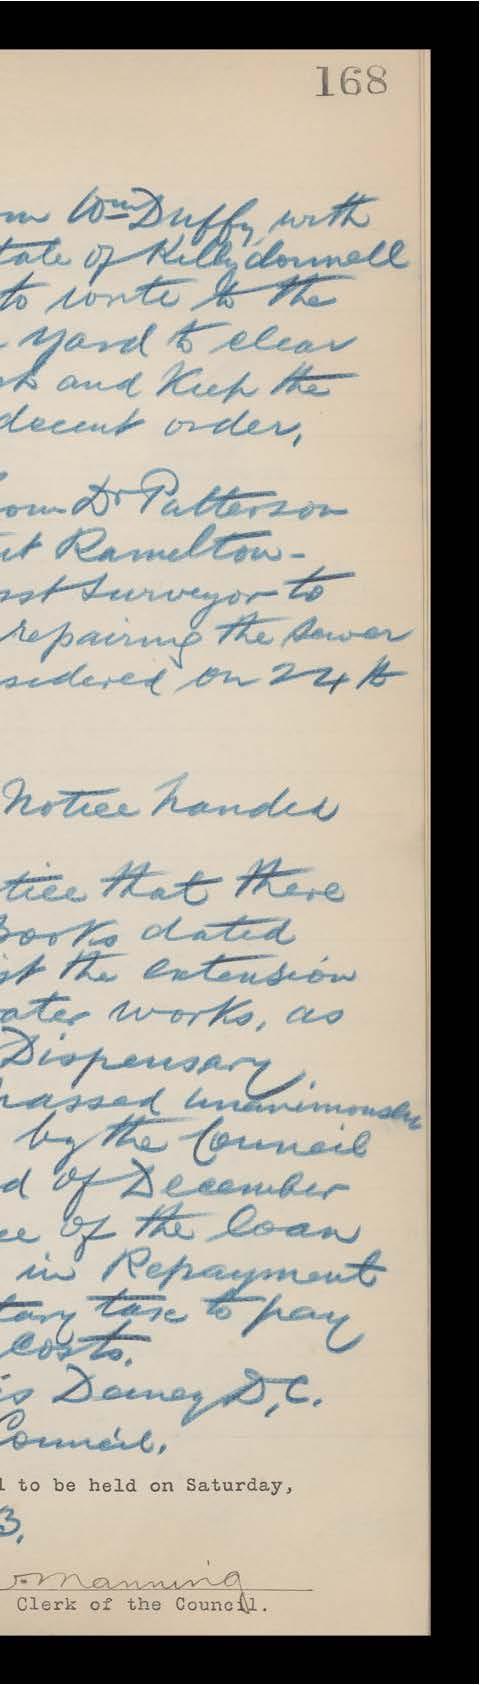 168
m Wm Duffy, with
tate of Killydonnell
to write to the
Yard to clear
and Keep the
decent order,
om Dr Patterson
at Ramelton-
sst Surveyor to
repairing the sewer
sidered on 24th
Notice handed
tice that there
Books dated
st the extension
ater works, as
Dispensary
passed unanimously
by the Council
d of December
ce of the loan
in Repayment
tary tax to pay
costs.
is D.C.
Council.
l to be held on Saturday,
3.
Manning
Clerk of the Council.